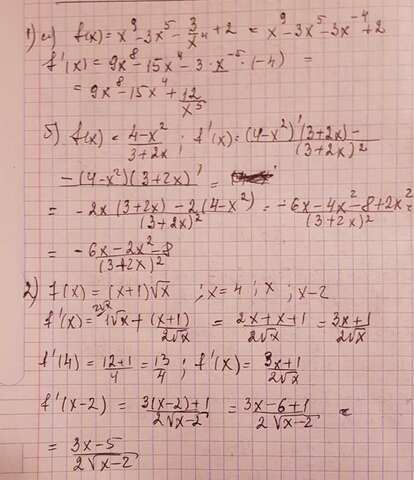 1) a) f(x) = x⁹ - 3x⁵ - 3/x⁴ + 2 = x⁹ - 3x⁵ - 3x⁻⁴ + 2
f'(x) = 9x⁸ - 15x⁴ - 3 · x⁻⁵ · (-4) =
= 9x⁸ - 15x⁴ + 12/x⁵
б) f(x) = (4-x²)/(3+2x) ; f'(x) = ((4-x²)'(3+2x) -
- (4-x²)(3+2x)')/(3+2x)² =
= (-2x(3+2x) - 2(4-x²))/(3+2x)² = (-6x - 4x² - 8 + 2x²)/(3+2x)² =
= (-6x - 2x² - 8)/(3+2x)²
2) f(x) = (x+1)√x ; x = 4 ; x ; x-2
f'(x) = 2√x 1√x + (x+1)/2√x = (2x + x + 1)/2√x = (3x+1)/2√x
f'(4) = (12+1)/4 = 13/4 ; f'(x) = (3x+1)/2√x
f'(x-2) = (3(x-2)+1)/2√x-2 = (3x-6+1)/2√x-2 =
= (3x-5)/2√x-2